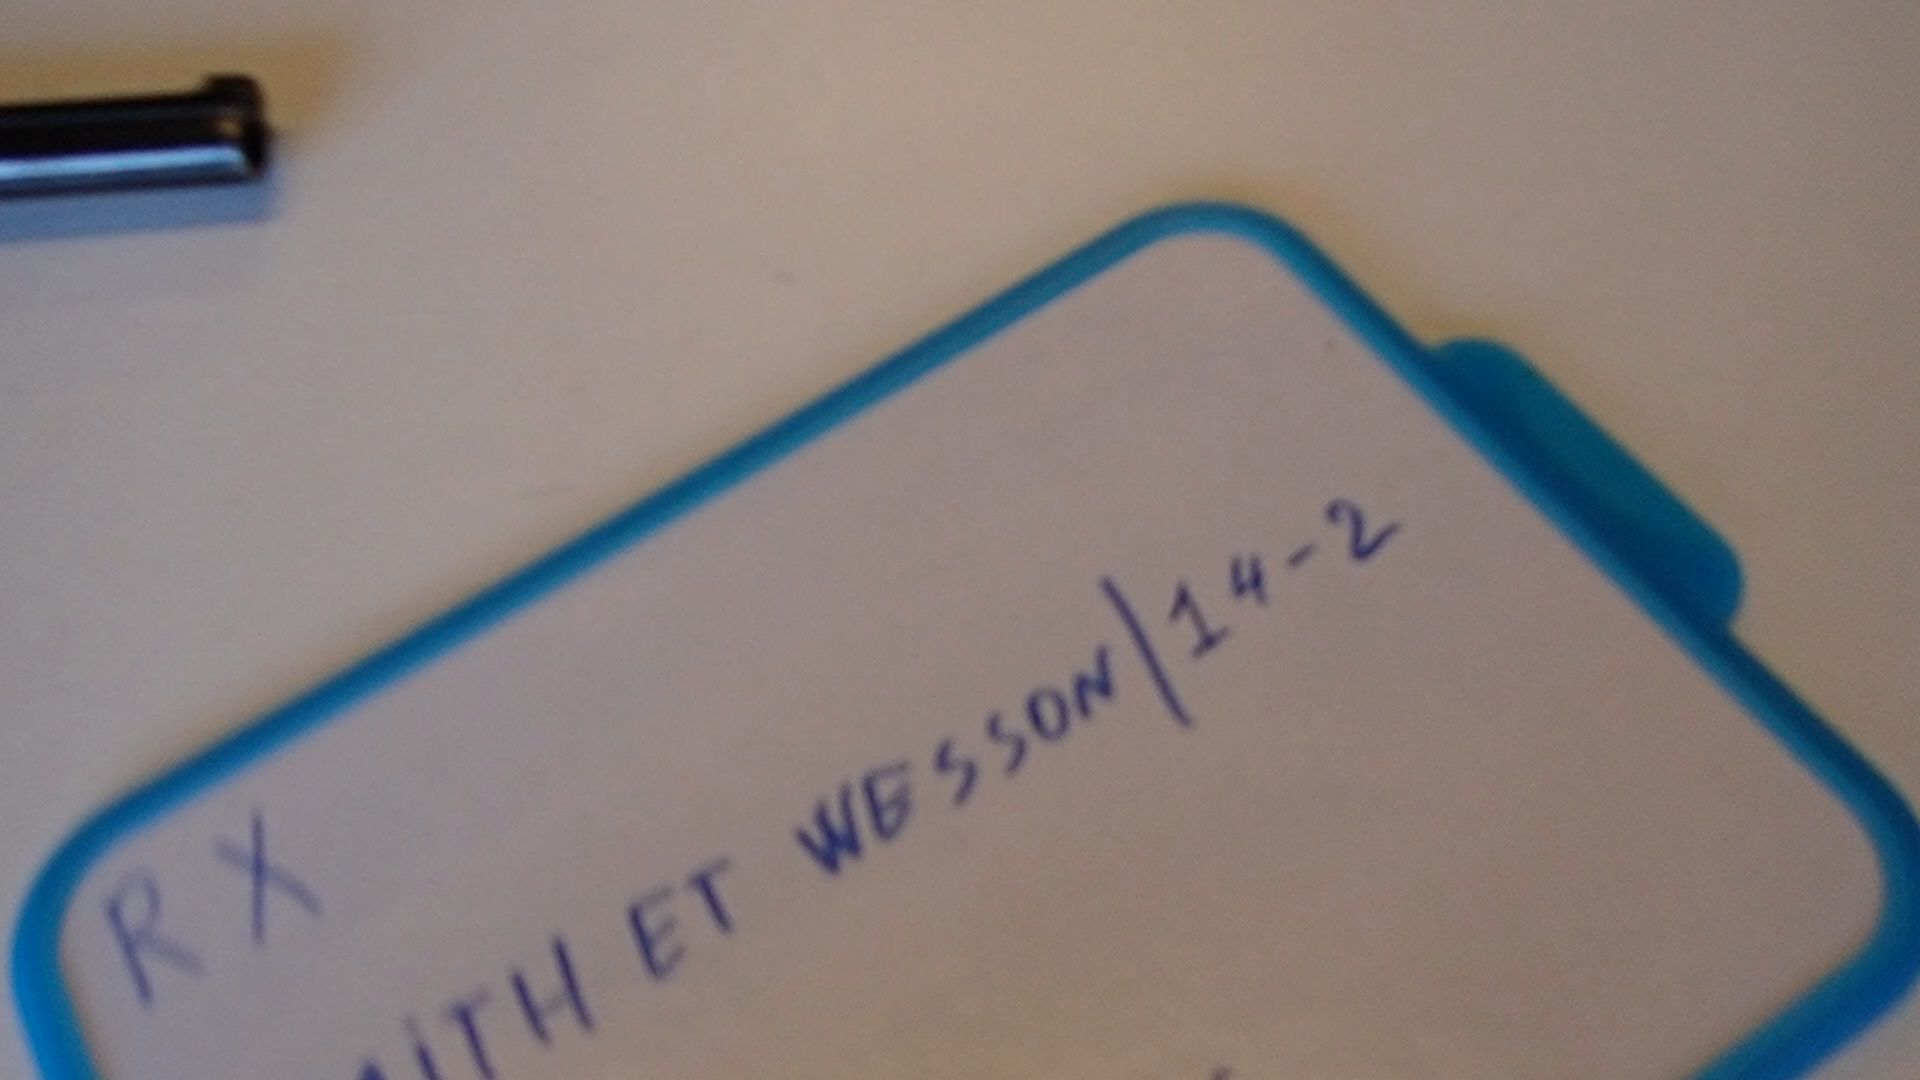 RX
ET WESSON/14-2